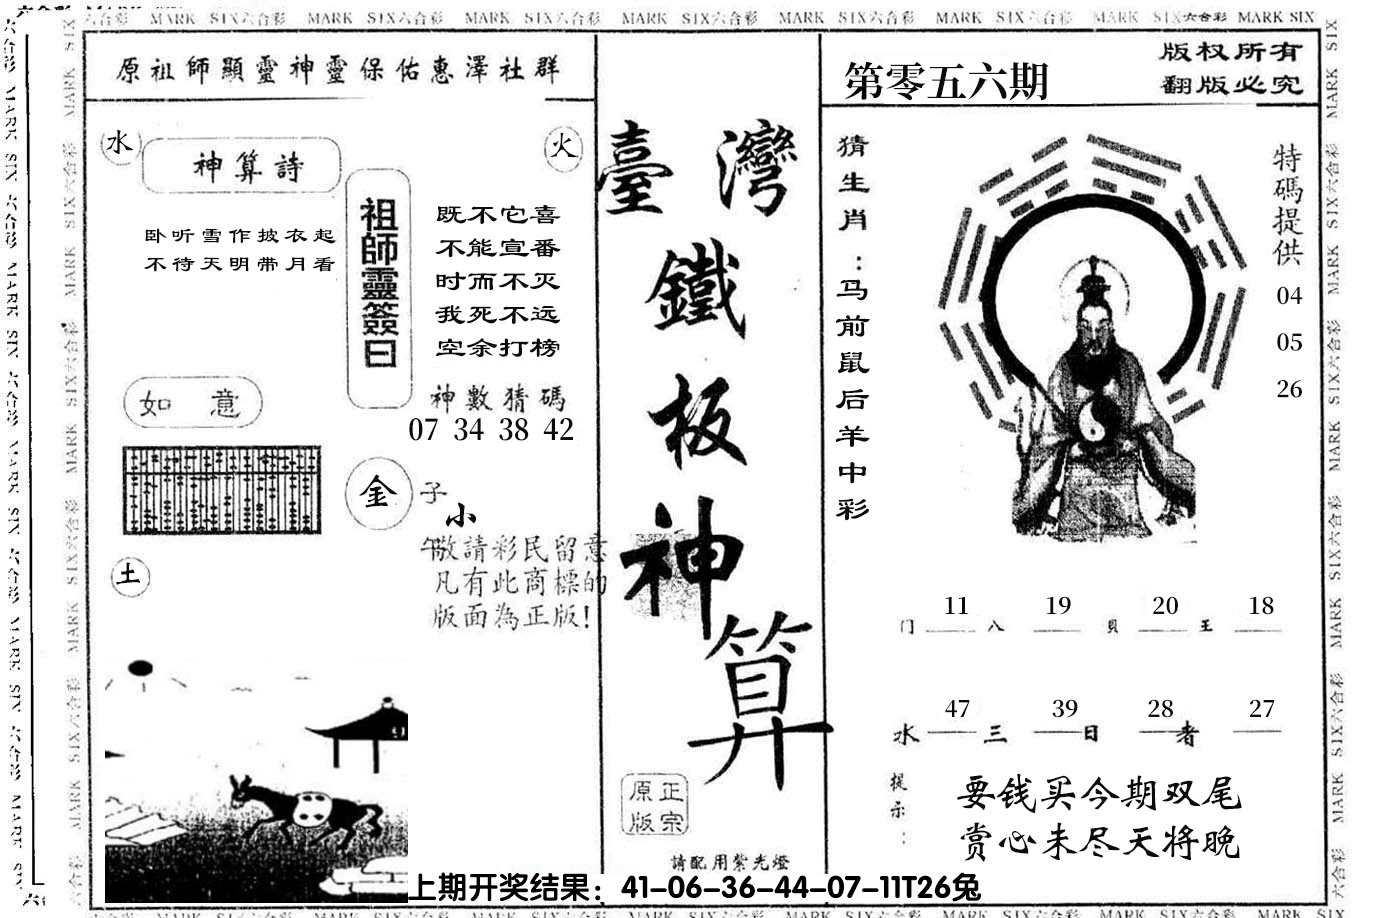 原祖師顯靈神靈保佑惠澤社群
水
火
神算詩
卧听雪作披衣起
不待天明带月看
祖師靈簽曰
既不它喜
不能宣番
时而不灭
我死不远
空余打榜
神數猜碼
07 34 38 42
如意
金
子
小
午敬請彩民留意
凡有此商標的
版面為正版！
土
臺灣
鐵
板
神
算
正宗
原版
請配用紫光燈
第零五六期
版权所有
翻版必究
猜生肖：马前鼠后羊中彩
特碼提供
04
05
26
11 19 20 18
门 八 貝 王
47 39 28 27
水 三 日 者
提示：
要钱买今期双尾
赏心未尽天将晚
上期开奖结果：41-06-36-44-07-11T26兔
MARK SIX六合彩 MARK SIX六合彩 MARK SIX六合彩 MARK SIX六合彩 MARK SIX六合彩 MARK SIX六合彩 MARK SIX六合彩 MARK SIX